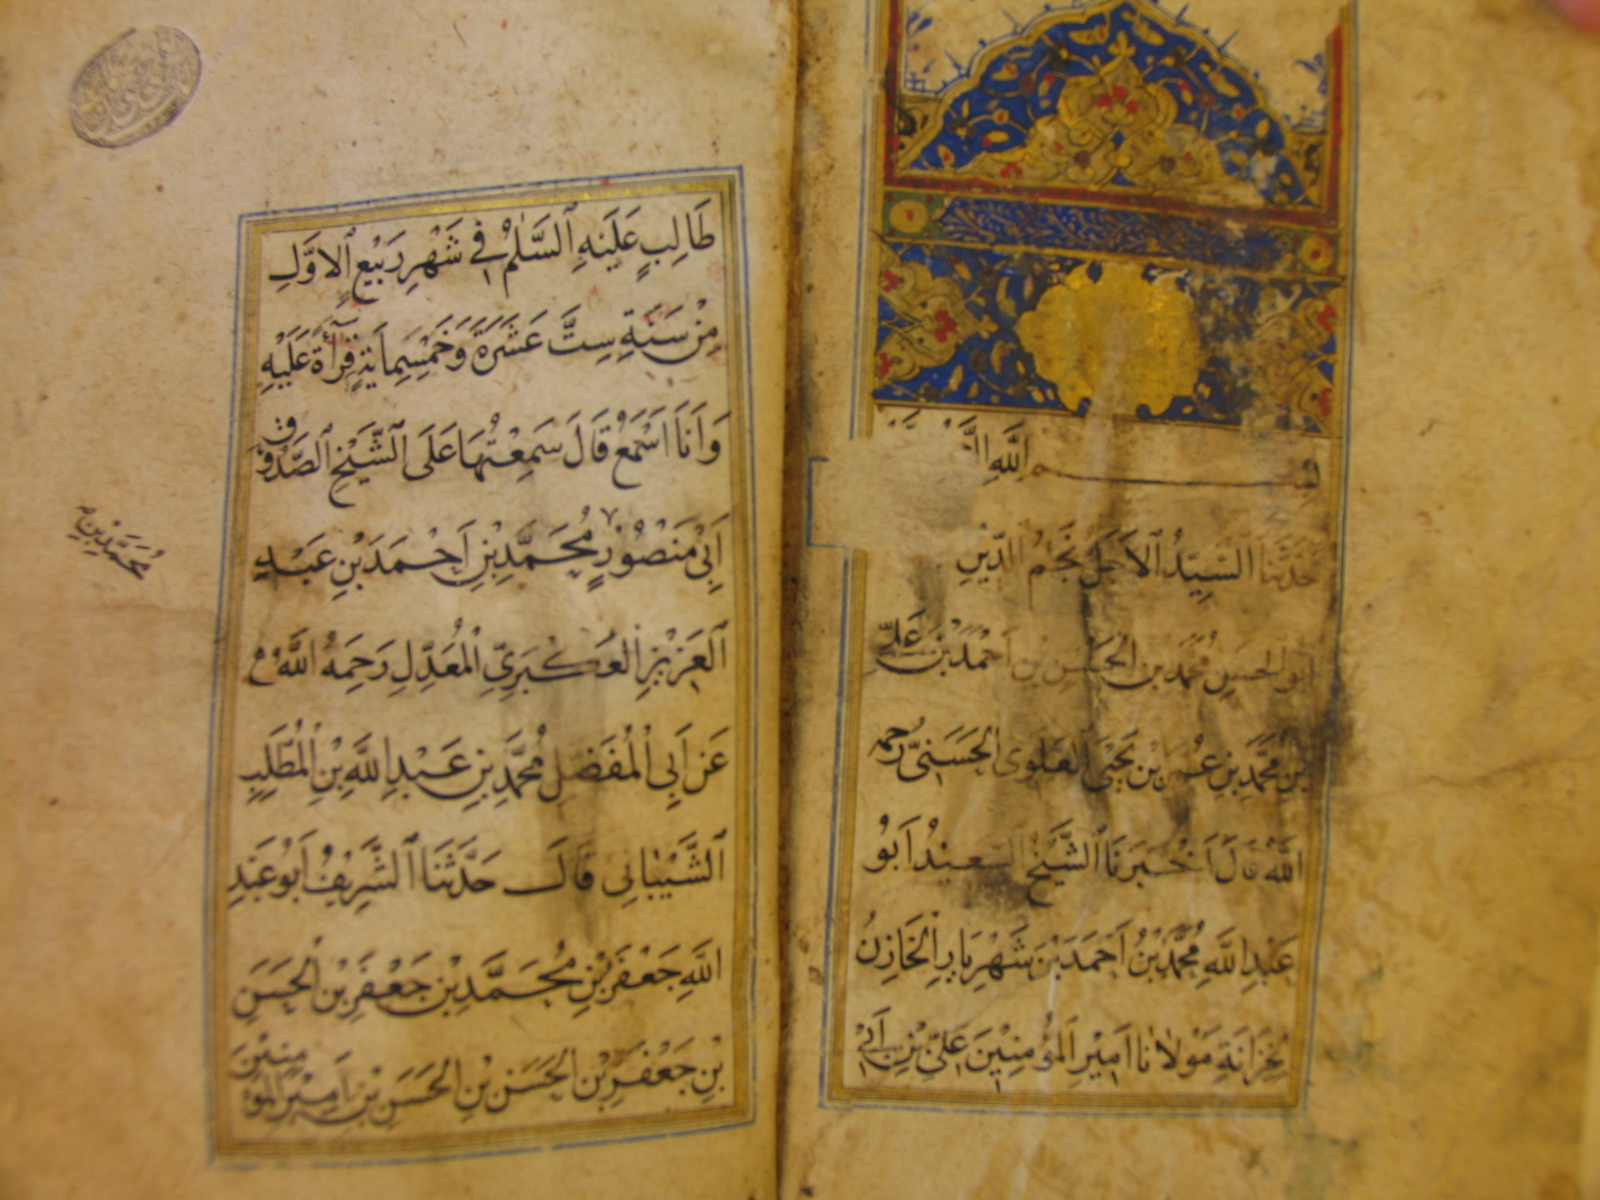 بِسْمِ اللهِ
حَدَّثَنَا السَّيِّدُ الاَجَلُّ نَجْمُ الدِّينِ
اَبُو الحَسَنِ مُحَمَّدُ بْنُ الحَسَنِ بْنِ اَحْمَدَ بْنِ عَلِيِّ
بْنِ مُحَمَّدِ بْنِ عُمَرَ بْنِ يَحْيَى العَلَوِى الحَسَنِىّ رَحِمَهُ
اللهُ قَالَ اَخْبَرَنَا الشَّيْخُ السَّعِيْدُ اَبُوْ
عَبْدِ اللهِ مُحَمَّدُ بْنُ اَحْمَدَ بْنِ شَهْرِيَارِ الخَازِنُ
لِخِزَانَةِ مَوْلَانَا اَمِيْرِ المُؤْمِنِيْنَ عَلِىّ بْنِ اَبِىْ
طَالِبٍ عَلَيْهِ السَّلٰمُ فِى شَهْرِ رَبِيْعِ الاَوَّلِ
مِنْ سَنَةِ سِتَّ عَشَرَةَ وَخَمْسِمِايَةٍ قِرَآءَةً عَلَيْهِ
وَاَنَا اَسْمَعُ قَالَ سَمِعْتُهَا عَلَى الشَّيْخِ الصَّدُوْقِ
اَبِىْ مَنْصُوْرٍ مُحَمَّدِ بْنِ اَحْمَدَ بْنِ عَبْدِ
العَزِيْزِ العَكْبَرِيِّ المُعَدِّلِ رَحِمَهُ اللهُ
عَنْ اَبِى الْمُفَضَّلِ مُحَمَّدِ بْنِ عَبْدِ اللهِ بْنِ الْمُطَّلِبِ
الشَّيْبَانِى قَالَ حَدَّثَنَا الشَّرِيْفُ اَبُو عَبْدِ
اللهِ جَعْفَرُ بْنُ مُحَمَّدِ بْنِ جَعْفَرِ بْنِ الْحَسَنِ
بْنِ جَعْفَرِ بْنِ الحَسَنِ بْنِ الحَسَنِ بْنِ اَمِيْرِ المُؤْمِنِيْنَ
مُحَمَّدِ بْنِ